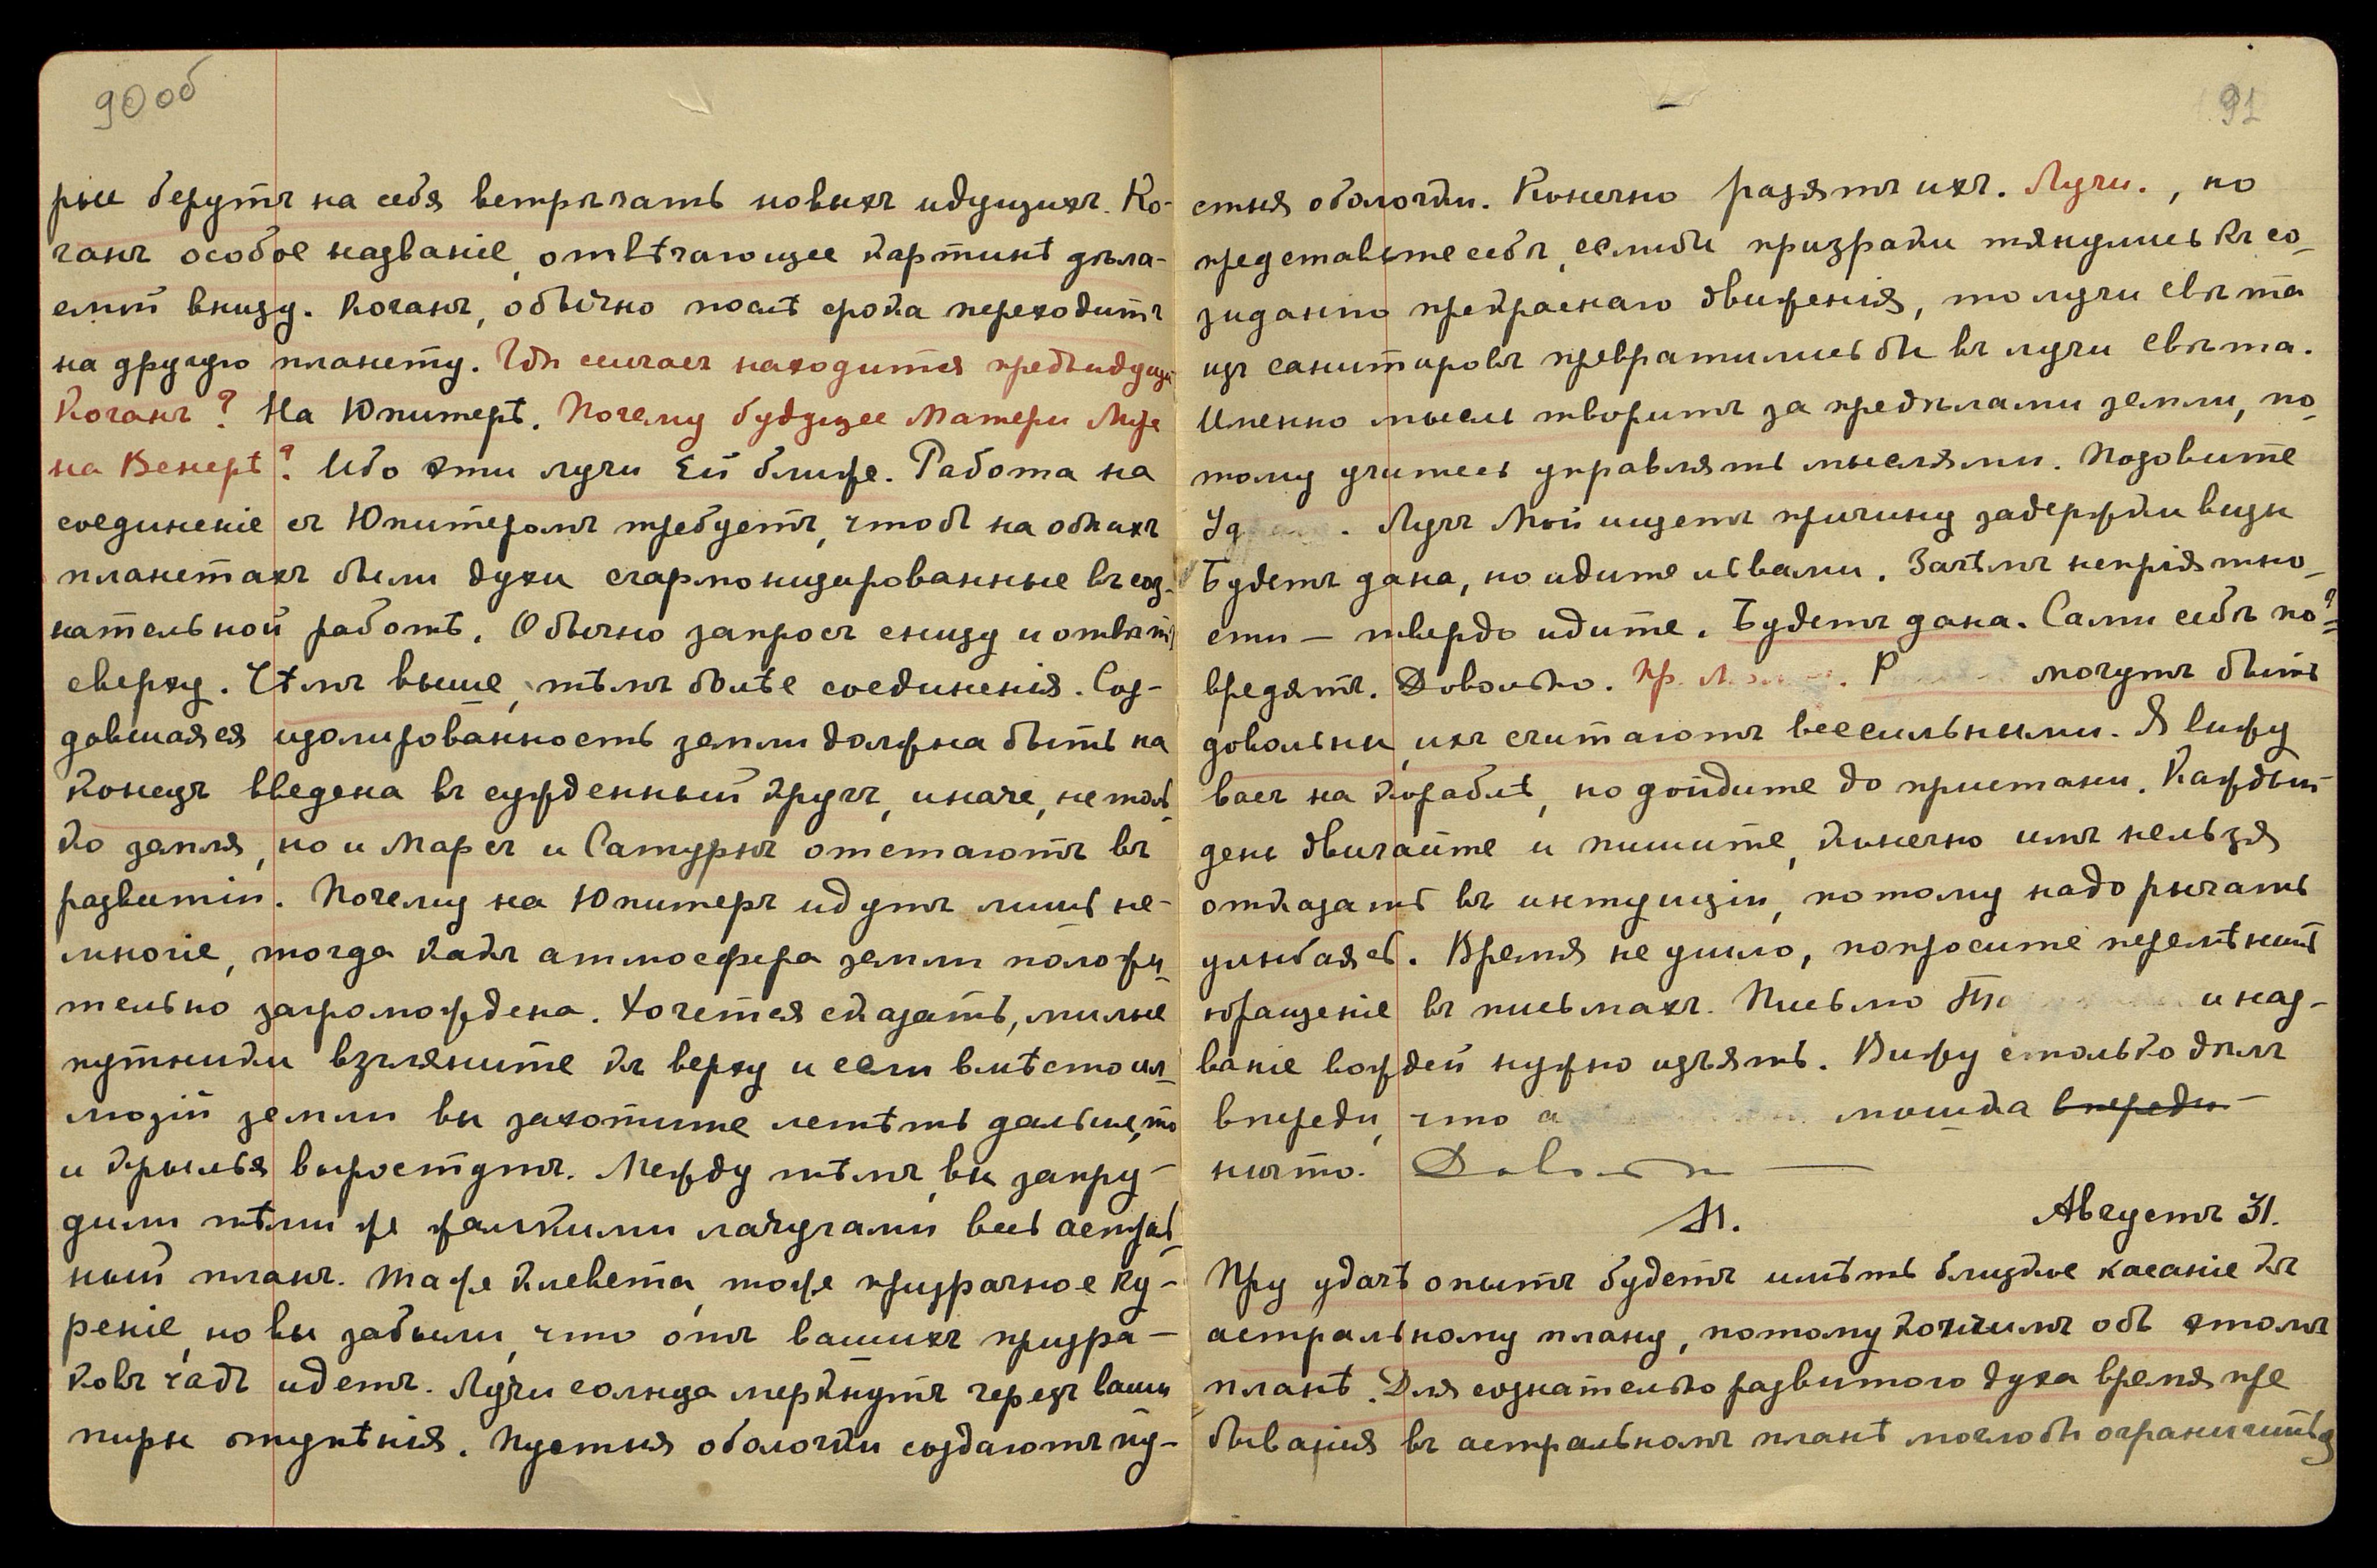 90об
рые берутъ на себя встрѣчать новыхъ идущихъ. Ко-
ганъ особое названіе, отвѣчающее картинѣ дѣла-
емой внизу. Коганъ, обычно послѣ срока переходитъ
на другую планету. Гдѣ сейчасъ находится предъидущій
Коганъ? На Юпитерѣ. Почему будущее Матери Міра
на Венерѣ? Ибо эти лучи Ей ближе. Работа на
соединеніе съ Юпитеромъ требуетъ, чтобъ на обѣихъ
планетахъ были духи сгармонизированные въ соз-
нательной работѣ. Обычно запросъ снизу и отвѣтъ
сверху. Чѣмъ выше, тѣмъ болѣе соединенія. Соз-
давшаяся изолированность земли должна быть на
конецъ введена въ сужденный кругъ, иначе, не толь-
ко земля, но и Марсъ и Сатурнъ отстаютъ въ
развитіи. Почему на Юпитеръ идутъ лишь не-
многіе, тогда какъ атмосфера земли положи-
тельно загромождена. Хочется сказать, милые
путники взгляните къ верху и если вмѣсто ил-
люзій земли вы захотите летѣть дальше, то
и крылья выростутъ. Между тѣмъ, вы запру-
дили тѣми же жалкими лачугами весь астраль-
ный планъ. Таже клевета, тоже призрачное ку-
реніе, но вы забыли, что отъ вашихъ призра-
ковъ чадъ идетъ. Лучи солнца меркнутъ черезъ ваши
пиры отупѣнія. Пустыя оболочки создаютъ пу-
91
стыя оболочки. Конечно разятъ ихъ. Лучи., но
представьте себѣ, еслибы призраки тянулись къ со-
зиданію прекраснаго движенія, то лучи свѣта
изъ санитаровъ превратились бы въ лучи Свѣта.
Именно мысль творитъ за предѣлами земли, по-
тому учитесь управлять мыслями. Позовите
Уд . Лучъ Мой ищетъ причину задержки визы
Будетъ дана, но идите львами. Зачѣмъ непріятно-
сти — твердо идите. Будетъ дана. Сами себѣ по?=
вредятъ. Довольно. Пр. М . Р могутъ быть
довольны, ихъ считаютъ всесильными. Я вижу
васъ на кораблѣ, но дойдите до пристани. Каждый
день двигайте и пишите, конечно имъ нельзя
отказать въ интуиціи, потому надо рычать
улыбаясь. Время не ушло, попросите перемѣнить
обращеніе въ письмахъ. Письмо и наз-
ваніе вождей нужно изъять. Вижу столько дѣлъ
впереди, что а мошка впереди
ничто. Довольно
М. Августъ 31.
При удачѣ опытъ будетъ имѣть близкое касаніе къ
астральному плану, потому кончимъ объ этомъ
планѣ. Для сознательно развитого духа время пре
быванія въ астральномъ планѣ моглобы ограничиться